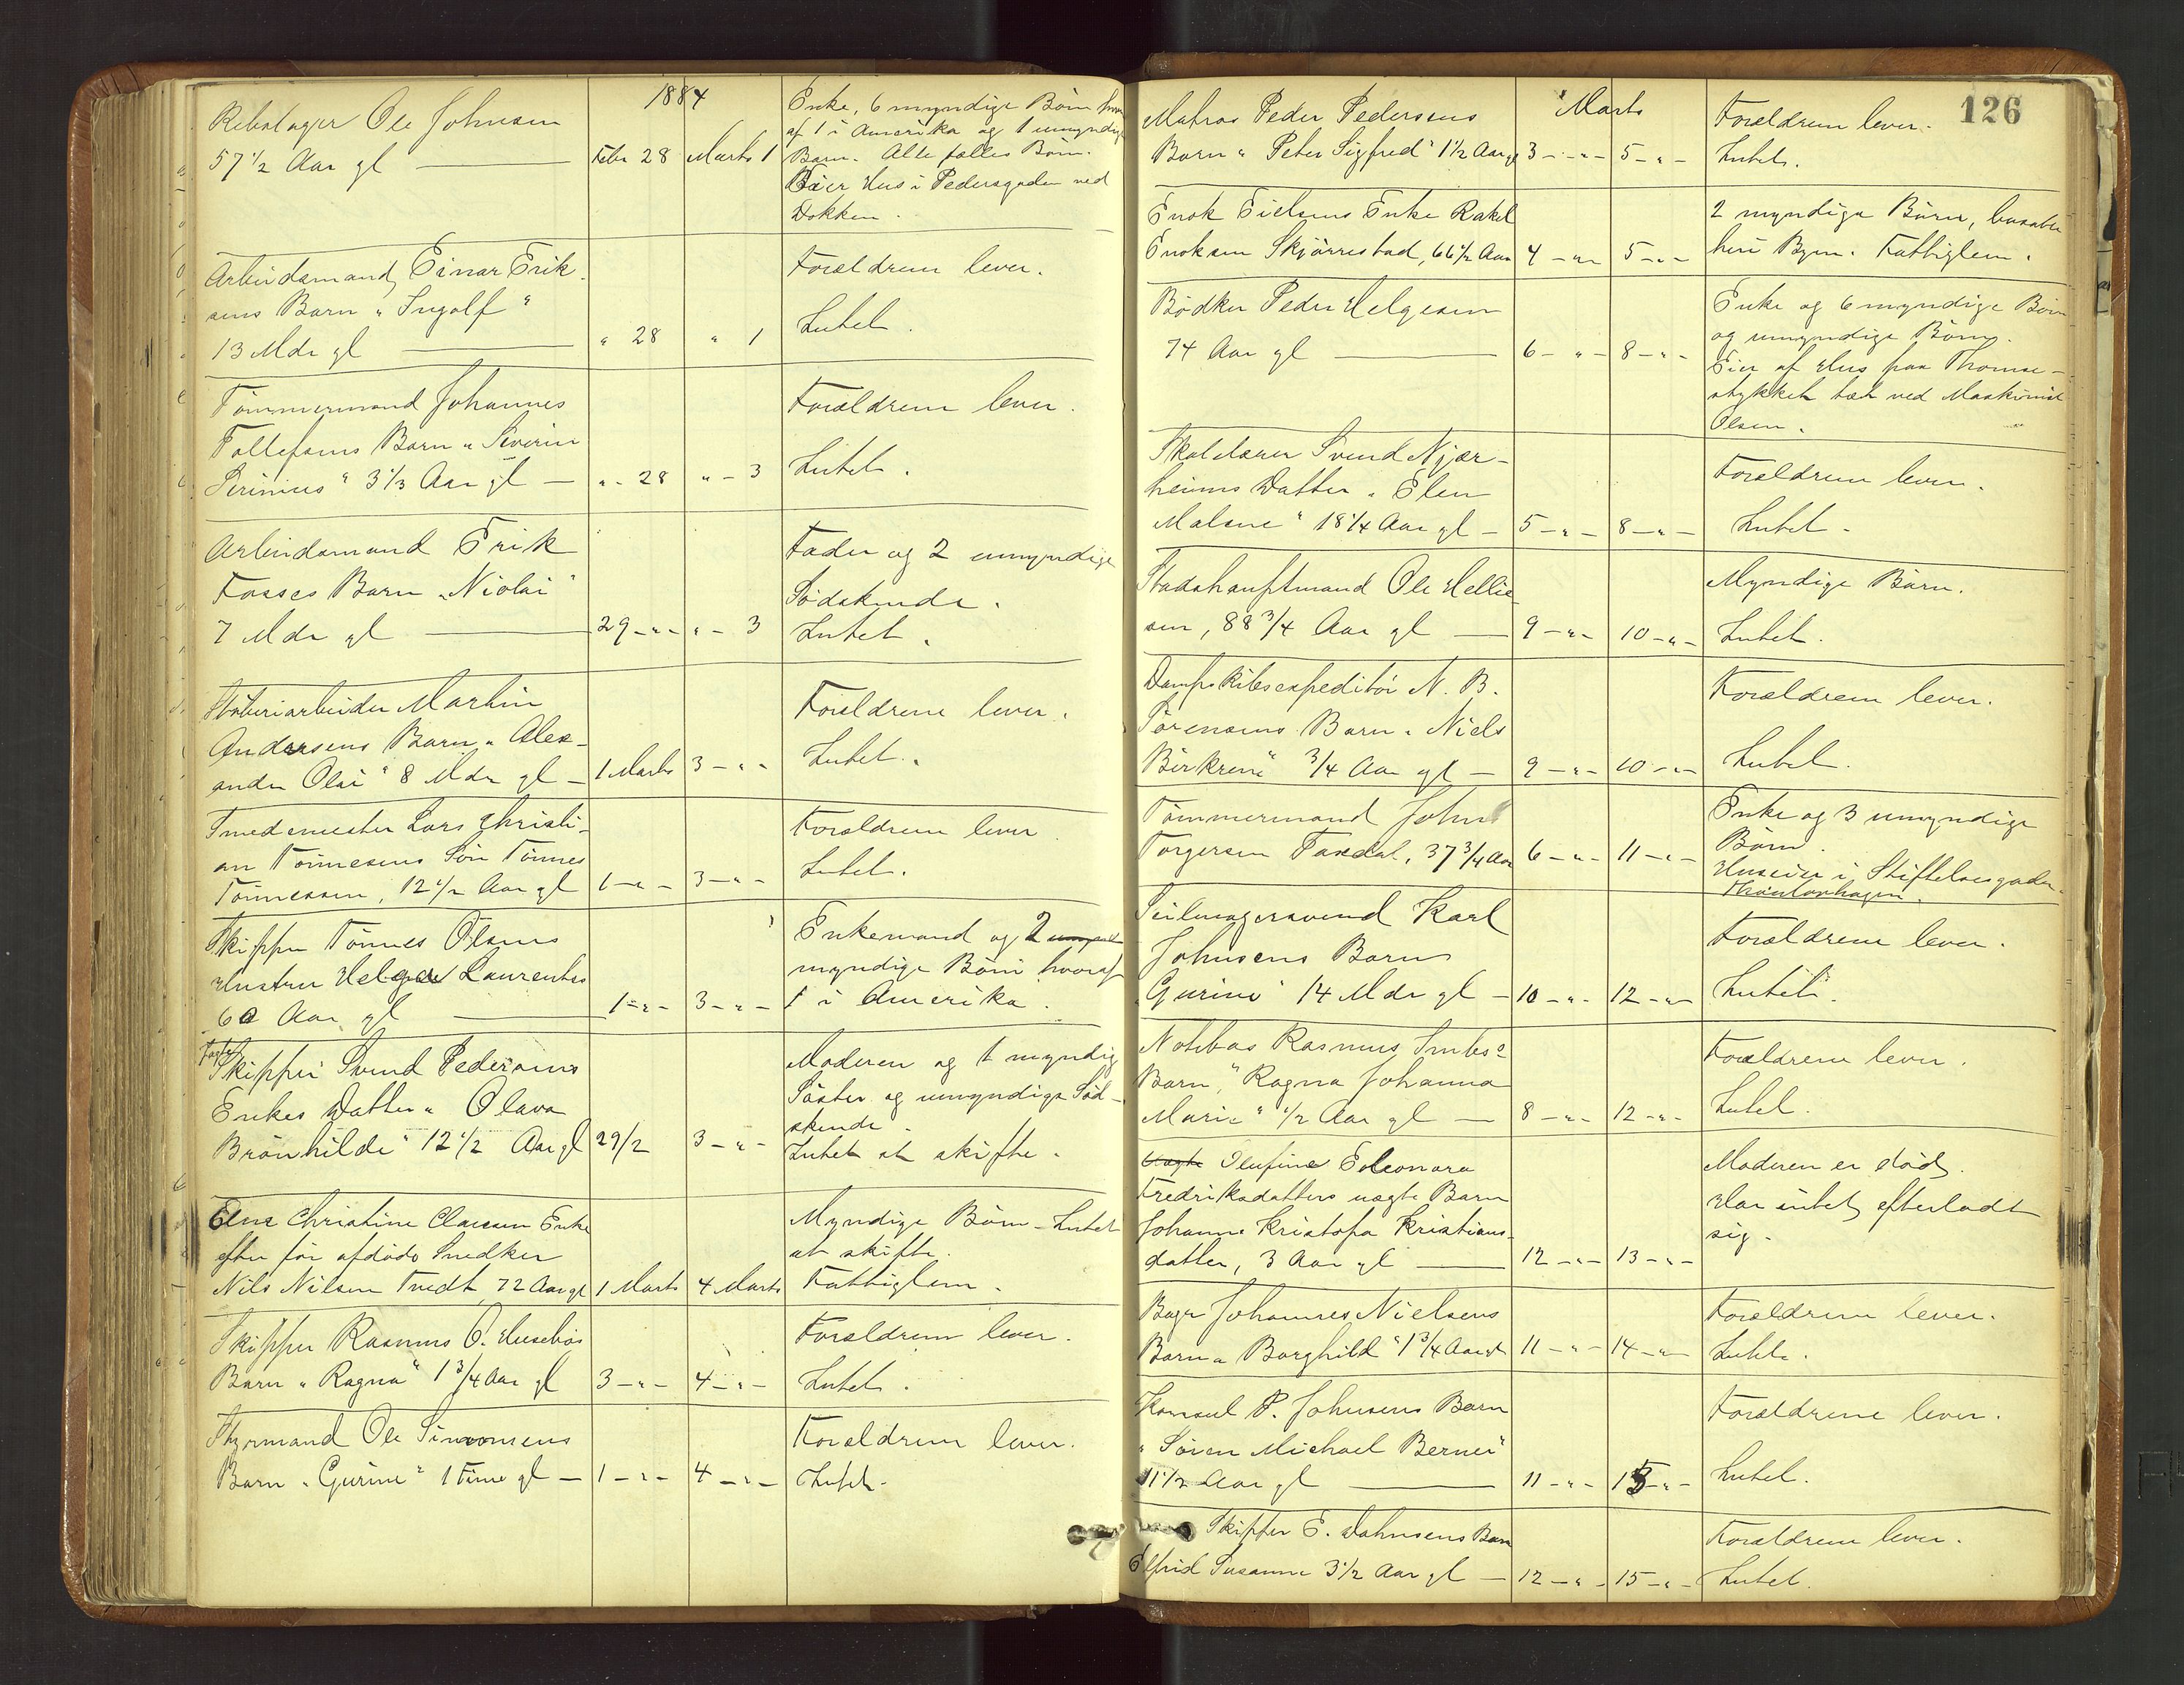 1884
Rebslager Ole Johnsen
57 1/2 Aar gl — Febr 28 Marts 1
Enke, 6 myndige Børn hvor
af 1 i Amerika og 1 umyndig
Barn. Alle fælles Børn.
Eier Hus i Pedersgaden ved
Dokken.
Arbeidsmand Einar Erik-
sens Barn „Ingolf“
13 Mdr gl — „ 28 „ 1
Forældrene lever.
Intet.
Tømmermand Johannes
Tollefsens Barn „Severin
Sirinius“ 3 1/3 Aar gl — „ - 28 „ - 3
Forældrene lever.
Intet.
Arbeidsmand Erik
Fosses Barn „Nicolai“
7 Mdr gl — 29 - „ - „ - 3
Fader og 2 umyndige
Sødskende.
Intet.
Støberiarbeider Martin
Andersens Barn „Alex-
ander Olai“ 8 Mdr gl — 1 Marts 3 - „ -
Forældrene lever.
Intet.
Smedemester Lars Christi-
an Tönnesens Søn Tønnes
Tønnessen, 12 1/2 Aar gl 1 - „ - 3 - „ -
Forældrene lever
Intet.
Skipper Tønnes Olsens
Hustru Helga Laurentse
60 Aar gl — 1 - „ - 3 - „ -
Enkemand og 2
myndige Børn hvoraf
1 i Amerika.
Skipper Svend Pedersens
Enkes Datter „Olava
Brönhilde“ 12 1/2 Aar gl 29/2 3 - „ -
Moderen og 1 myndig
Søster og umyndige Sød-
skende.
Intet at skifte.
Elne Christine Claesen Enke
efter før afdøde Snedker
Nils Nilsen Tvedt, 72 Aar gl 1 Marts 4 Marts
Myndige Børn - Intet
at skifte.
Fattiglem.
Skipper Rasmus O. Husebøs
Barn „Ragna“ 1 3/4 Aar gl 3 - „ - 4 - „ -
Forældrene lever.
Intet.
Styrmand Ole Simonsens
Barn „Gurine“ 1 Time gl — 1 - „ - 4 - „ -
Forældrene lever.
Intet.
126
Marts
Matros Peder Pedersens
Barn „Peter Sigfred“ 1 1/2 Aar gl 3 - „ - 5 - „ -
Forældrene lever.
Intet.
Enok Eielsens Enke Rakel
Enoksen Skjörrestad, 66 1/2 Aar 4 - „ - 5 - „ -
2 myndige Børn, bosatte
heri Byen. Fattiglem.
Bødker Peder Helgesen
74 Aar gl — 6 - „ - 8 - „ -
Enke og 6 myndige Børn
og umyndige Børn.
Eier af Hus paa Thomse-
stykket tæt ved Maskinist
Olsen.
Skolelærer Svend Njær-
heims Datter „Elen
Malene“ 18 1/4 Aar gl — 5 - „ - 8 - „ -
Forældrene lever.
Intet.
Stadshauptmand Ole Hellie-
sen, 88 3/4 Aar gl — 9 - „ - 10 - „ -
Myndige Børn.
Intet.
Dampskibsexpeditör N. B.
Sørensens Barn „Niels
Birkrem“ 3/4 Aar gl — 9 - „ - 10 - „ -
Forældrene lever.
Intet.
Tømmermand John
Torgersen Faxdal, 37 3/4 Aar 6 - „ - 11 - „ -
Enke og 3 umyndige
Børn.
Huseier i Stiftelsesgaden
Seilmagersvend Karl
Johnsens Barn
„Gurine“ 14 Mdr gl — 10 - „ - 12 - „ -
Forældrene lever.
Intet.
Notebas Rasmus
Barn, „Ragna Johanna
Marie“ 1/2 Aar gl — 8 - „ - 12 - „ -
Forældrene lever.
Intet.
Olufine Eleonora
Fredriksdatters uægte Barn
Johanne Kristofa Kristians-
datter, 3 Aar gl — 12 - „ - 13 - „ -
Moderen er død.
Har intet efterladt
sig.
Bager Johannes Nielsens
Barn „Borghild“ 1 3/4 Aar gl 11 - „ - 14 - „ -
Forældrene lever.
Intet.
Konsul P. Johnsens Barn
„Søren Michael Berner“
11 1/2 Aar gl — 11 - „ - 15 - „ -
Forældrene lever.
Intet.
Skipper E. Dahnsens Barn
Elfrid Susanne 3 1/2 Aar gl — 12 - „ - 15 - „ -
Forældrene lever.
Intet.